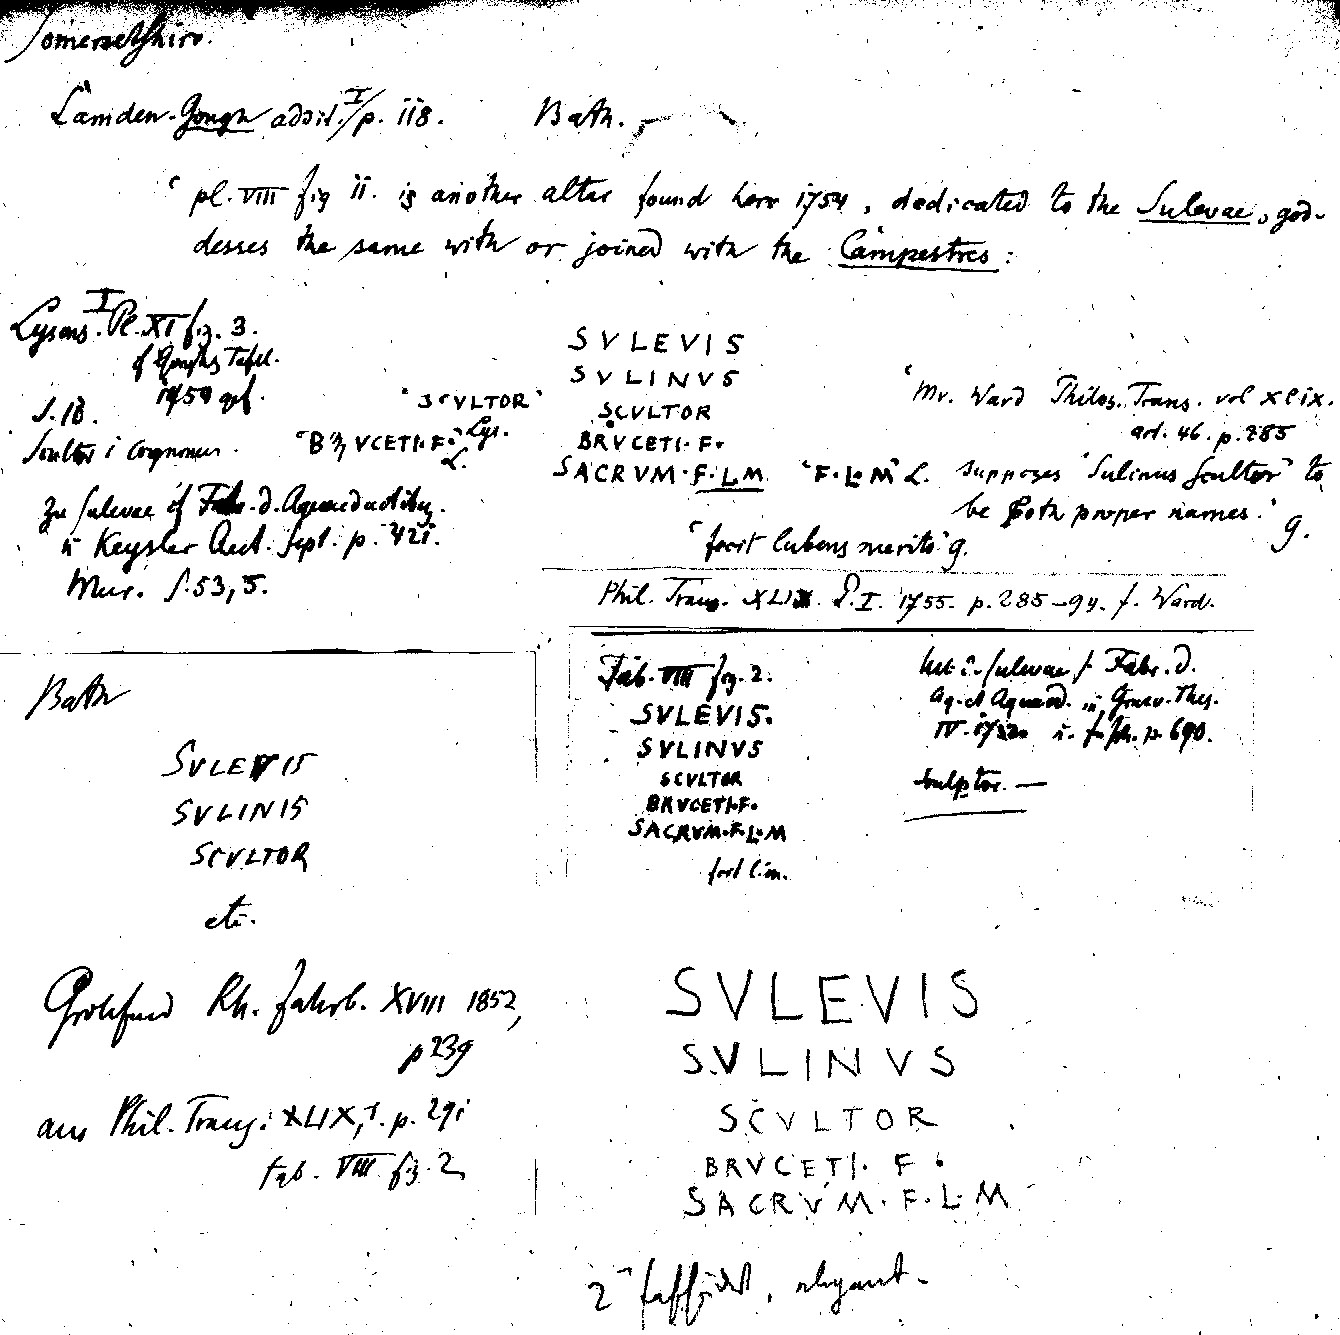 Somersetshire.
Camden-Gough addit. I/p. 118. Bath.
"pl. VIII fig 11. is another altar found here 1754, dedicated to the Sulevae, god-
desses the same with or joined with the Campestres:
Lysons. I Pl. XI fig. 3.
cf Goughs Tafel.
1754 gef.
SVLEVIS
SVLINVS
SCVLTOR
BRVCETI. F.
SACRVM. F. L. M
"SCVLTOR"
"BRVCETI. F." Lys.
L.
J. 18.
Scultor i Cognomen.
zu Sulevae cf Fabr. d. Aquaeductibus.
Keysler Ant. Sept. p. 421.
Mur. f. 53, 5.
"Mr. Ward Philos. Trans. vol XLIX.
art. 46. p. 285
"F. L. M" L. supposes "Sulinus Scultor" to
be both proper names." G.
"fecit lubens merito" G.
Phil. Trans. XLIX. P. I. 1755. p. 285-94. J. Ward.
Tab. VIII fig. 2.
SVLEVIS.
SVLINVS
SCVLTOR
BRVCETI. F.
SACRVM. F. L. M
Sulevae Fabr. d.
Aq. et Aquaed. in Graev. Thes.
IV. p. 690.
Sculptor. —
Bath
SVLEVIS
SVLINIS
SCVLTOR
etc.
Grotefend Rh. Jahrb. XVIII 1852,
p 239
aus Phil. Trans. XLIX, I. p. 291
tab. VIII fig. 2
SVLEVIS
SVLINVS
SCVLTOR
BRVCETI. F.
SACRVM. F. L. M
2 elegant.